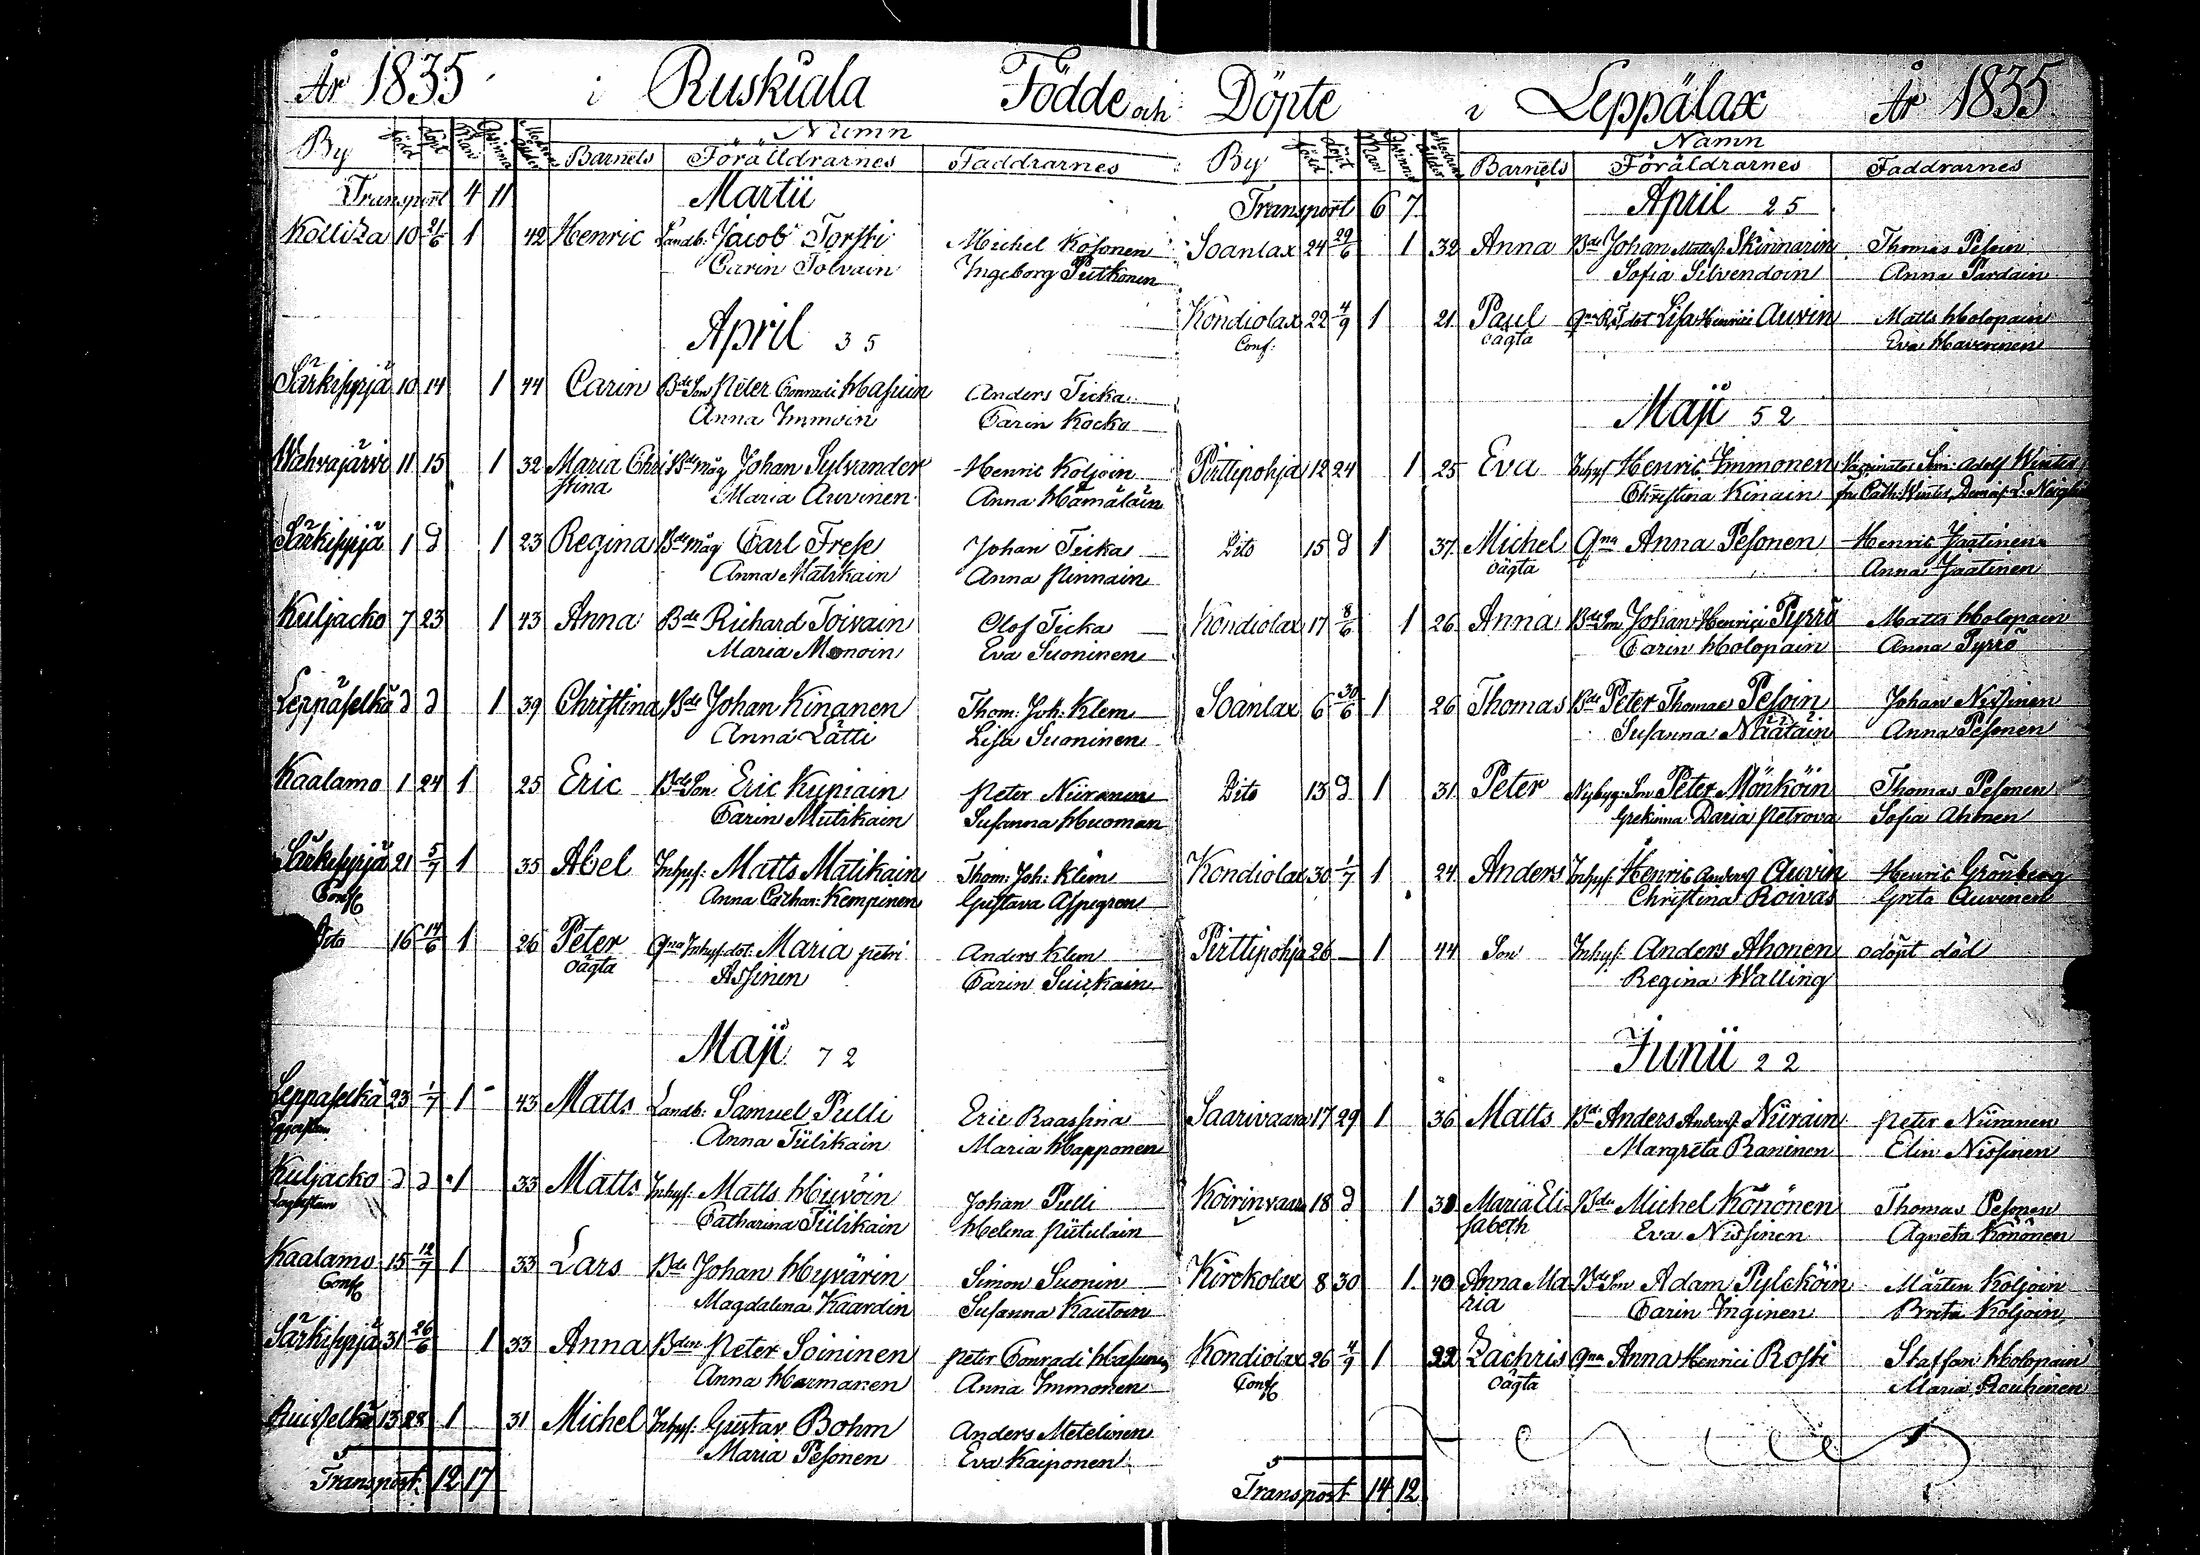 År 1835 i Ruskiala Födde och
By Född Döpt Man Qvinna Modrens ålder Namn
Barnets Föräldrarnes Faddrarnes
Transport 4 11 Martii
Kolliza 10 21/6 1 42 Henric Landb: Jacob Torsti Michel Kosonen
Carin Tolvain Ingeborg Putkonen
April 3 5
Särkisyrjä 10 14 1 44 Carin Bde Son Peter Conradi Hasuin Anders Ticka
Anna Immoin Carin Kocko
Wahvajärvi 11 15 1 32 Maria Chri Bde Måg Johan Sylvander Henric Koljoin
stina Maria Auvinen Anna Hämäläin
Särkisyrjä 1 d 1 23 Regina Bde Måg Carl Frese Johan Ticka
Anna Matskain Anna Pinnain
Kuljacko 7 23 1 43 Anna Bde Richard Toivain Olof Ticka
Maria Monoin Eva Suoninen
Leppäselkä d d 1 39 Christina Bde Johan Kinanen Thom: Joh: Klem
Anna Lätti Lisa Suoninen
Kaalamo 1 24 1 25 Eric Bde Son Eric Kupiain Peter Niiranen
Carin Mutskain Susanna Huoman
Särkisyrjä 21 5/7 1 35 Abel Inhys: Matts Matikain Thom: Joh: Klem
Conf Anna Cathar: Kempinen Gustava Aspegren
Dito 16 14/6 1 26 Peter Qna Inhys: dot: Maria Petri Anders Klem
oägta Assinen Carin Suikain
Maji 7 2
Leppäselkä 23 1/7 1 43 Matts Landb: Samuel Pulli Eric Raassina
Anna Tiilikain Maria Happonen
Kuljacko d d 1 33 Matts Inhys: Matts Hiivöin Johan Pulli
Catharina Tiilikain Helena Piitulain
Kaalamo 15 12/7 1 33 Lars Bde Johan Hyvärin Simon Suonin
Conf Magdalena Kaardin Susanna Kautoin
Särkisyrjä 31 26/6 1 33 Anna Bden Peter Soininen Peter Conradi Hasunen
Anna Harmanen Anna Immonen
Ruisselkä 13 28 1 31 Michel Inhys: Gustav Bohm Anders Metelinen
Maria Pesonen Eva Kaiponen
Transport 12 17
Döpte i Leppälax År 1835
By Född Döpt Man Qvinna Modrens ålder Namn
Barnets Föräldrarnes Faddrarnes
Transport 6 7 April 2 5
Soanlax 24 29/6 1 32 Anna Bde Johan Mattss. Skinnarin Thomas Pesoin
Sofia Silvendoin Anna Pardain
Kondiolax 22 4/9 1 21 Paul Qna Rs. dot Lisa Henrici Auvin Matts Holopain
Conf: oägta Eva Haverinen
Maji 5 2
Pirttipohja 12 24 1 25 Eva Inhys Henric Immonen Vaccinator Sim: Adolf Winter
Christina Kinain fru Cath: Winter, Demois: L. Neigli
Dito 15 d 1 37 Michel Qna Anna Pesonen Henric Jaatinen
oägta Anna Jaatinen
Kondiolax 17 8/6 1 26 Anna Bde Son Johan Henrici Pyrrö Matts Holopain
Carin Holopain Anna Pyrrö
Soanlax 6 30/6 1 26 Thomas Bde Peter Thomae Pesoin Johan Nissinen
Susanna Näätäin Anna Pesonen
Dito 13 d 1 31 Peter Nybyg: Son Peter Mönköin Thomas Pesonen
Grekinna Daria Petrova Sofia Ahonen
Kondiolax 30 1/7 1 24 Anders Inhys: Henric Anderss Auvin Henric Grönberg
Christina Roivas Greta Auvinen
Pirttipohja 26 — 1 44 Son Inhys: Anders Ahonen odöpt död
Regina Walling
Junii 2 2
Saarivaara 17 29 1 36 Matts Bde Anders Anderss: Niirain Peter Niiranen
Margreta Raninen Elin Nissinen
Koirinvaara 18 d 1 38 Maria Eli- Bden Michel Könönen Thomas Pesonen
sabeth Eva Nissinen Agneta Könönen
Kirckolax 8 30 1 40 Anna Ma Bde Son Adam Pylcköin Mårten Koljoin
ria Carin Inginen Brita Koljoin
Kondiolax 26 4/9 1 22 Zachris Qna Anna Henrici Rosti Staffan Holopain
Conf oägta Maria Rouhinen
Transport 14 12